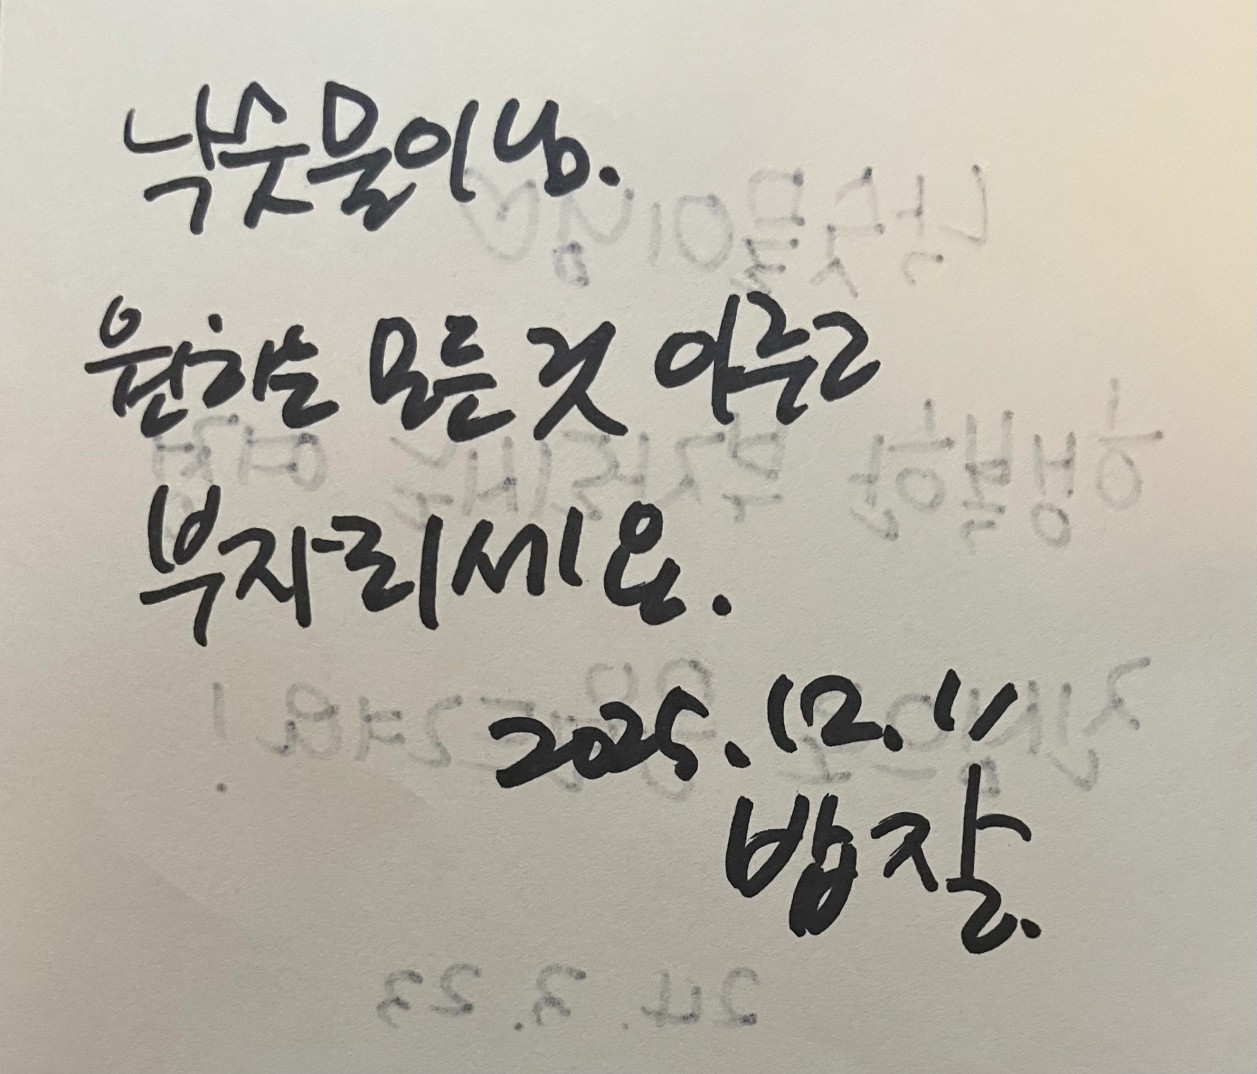 낙숫물이님.
원하는 모든 것 이루고
부자되세요.
2025.12.11
밥잘.